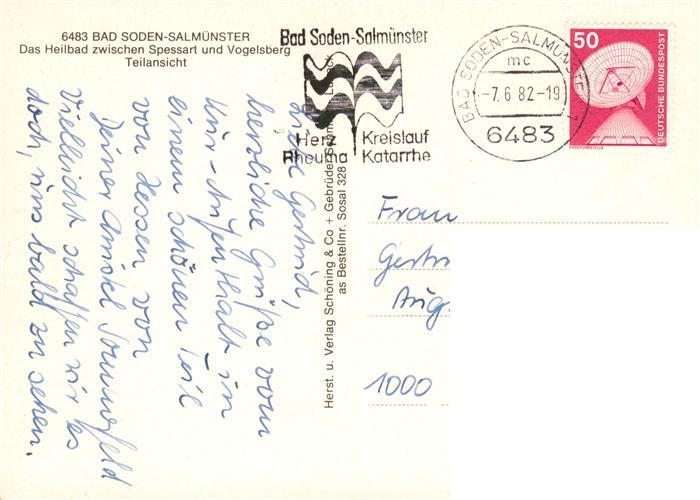 6483 BAD SODEN-SALMÜNSTER
Das Heilbad zwischen Spessart und Vogelsberg
Teilansicht
Bad Soden-Salmünster
Herz Kreislauf
Rheuma Katarrhe
BAD SODEN-SALMÜNSTER
mc
-7.6.82-19
6483
50
DEUTSCHE BUNDESPOST
ERDEFUNKSTELLE
Liebe Gertrud,
herzliche Grüße vom
Kur-Aufenthalt in
einem schönen Teil
von Hessen von
Deiner Christel Sommerfeld
Vielleicht schaffen wir es
doch, uns bald zu sehen.
Herst. u. Verlag Schöning & Co + Gebrüder
as Bestellnr. Sosal 328
Frau
Gertr
Aug
1000